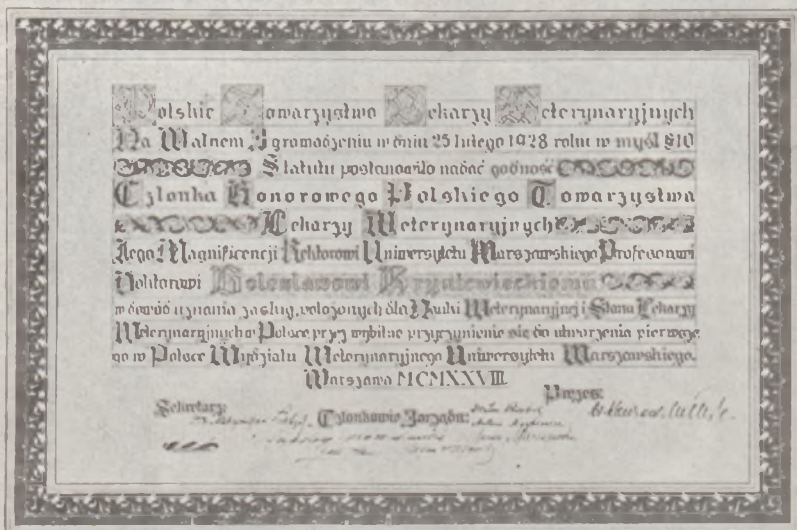 Polskie Towarzystwo Lekarzy Weterynaryjnych
Na Walnem Zgromadzeniu w dniu 25 lutego 1928 roku w myśl §10
Statutu postanowiło nadać godność
Członka Honorowego Polskiego Towarzystwa
Lekarzy Weterynaryjnych
Jego Magnificencji Rektorowi Uniwersytetu Warszawskiego Profesorowi
Doktorowi Bolesławowi Hryniewieckiemu
w dowód uznania zasług, położonych dla Nauki Weterynaryjnej i Stanu Lekarzy
Weterynaryjnych w Polsce, przez wybitne przyczynienie się do utworzenia pierwsze
go w Polsce Wydziału Weterynaryjnego Uniwersytetu Warszawskiego.
Warszawa MCMXXVIII.
Sekretarz: Członkowie Zarządu: Prezes: